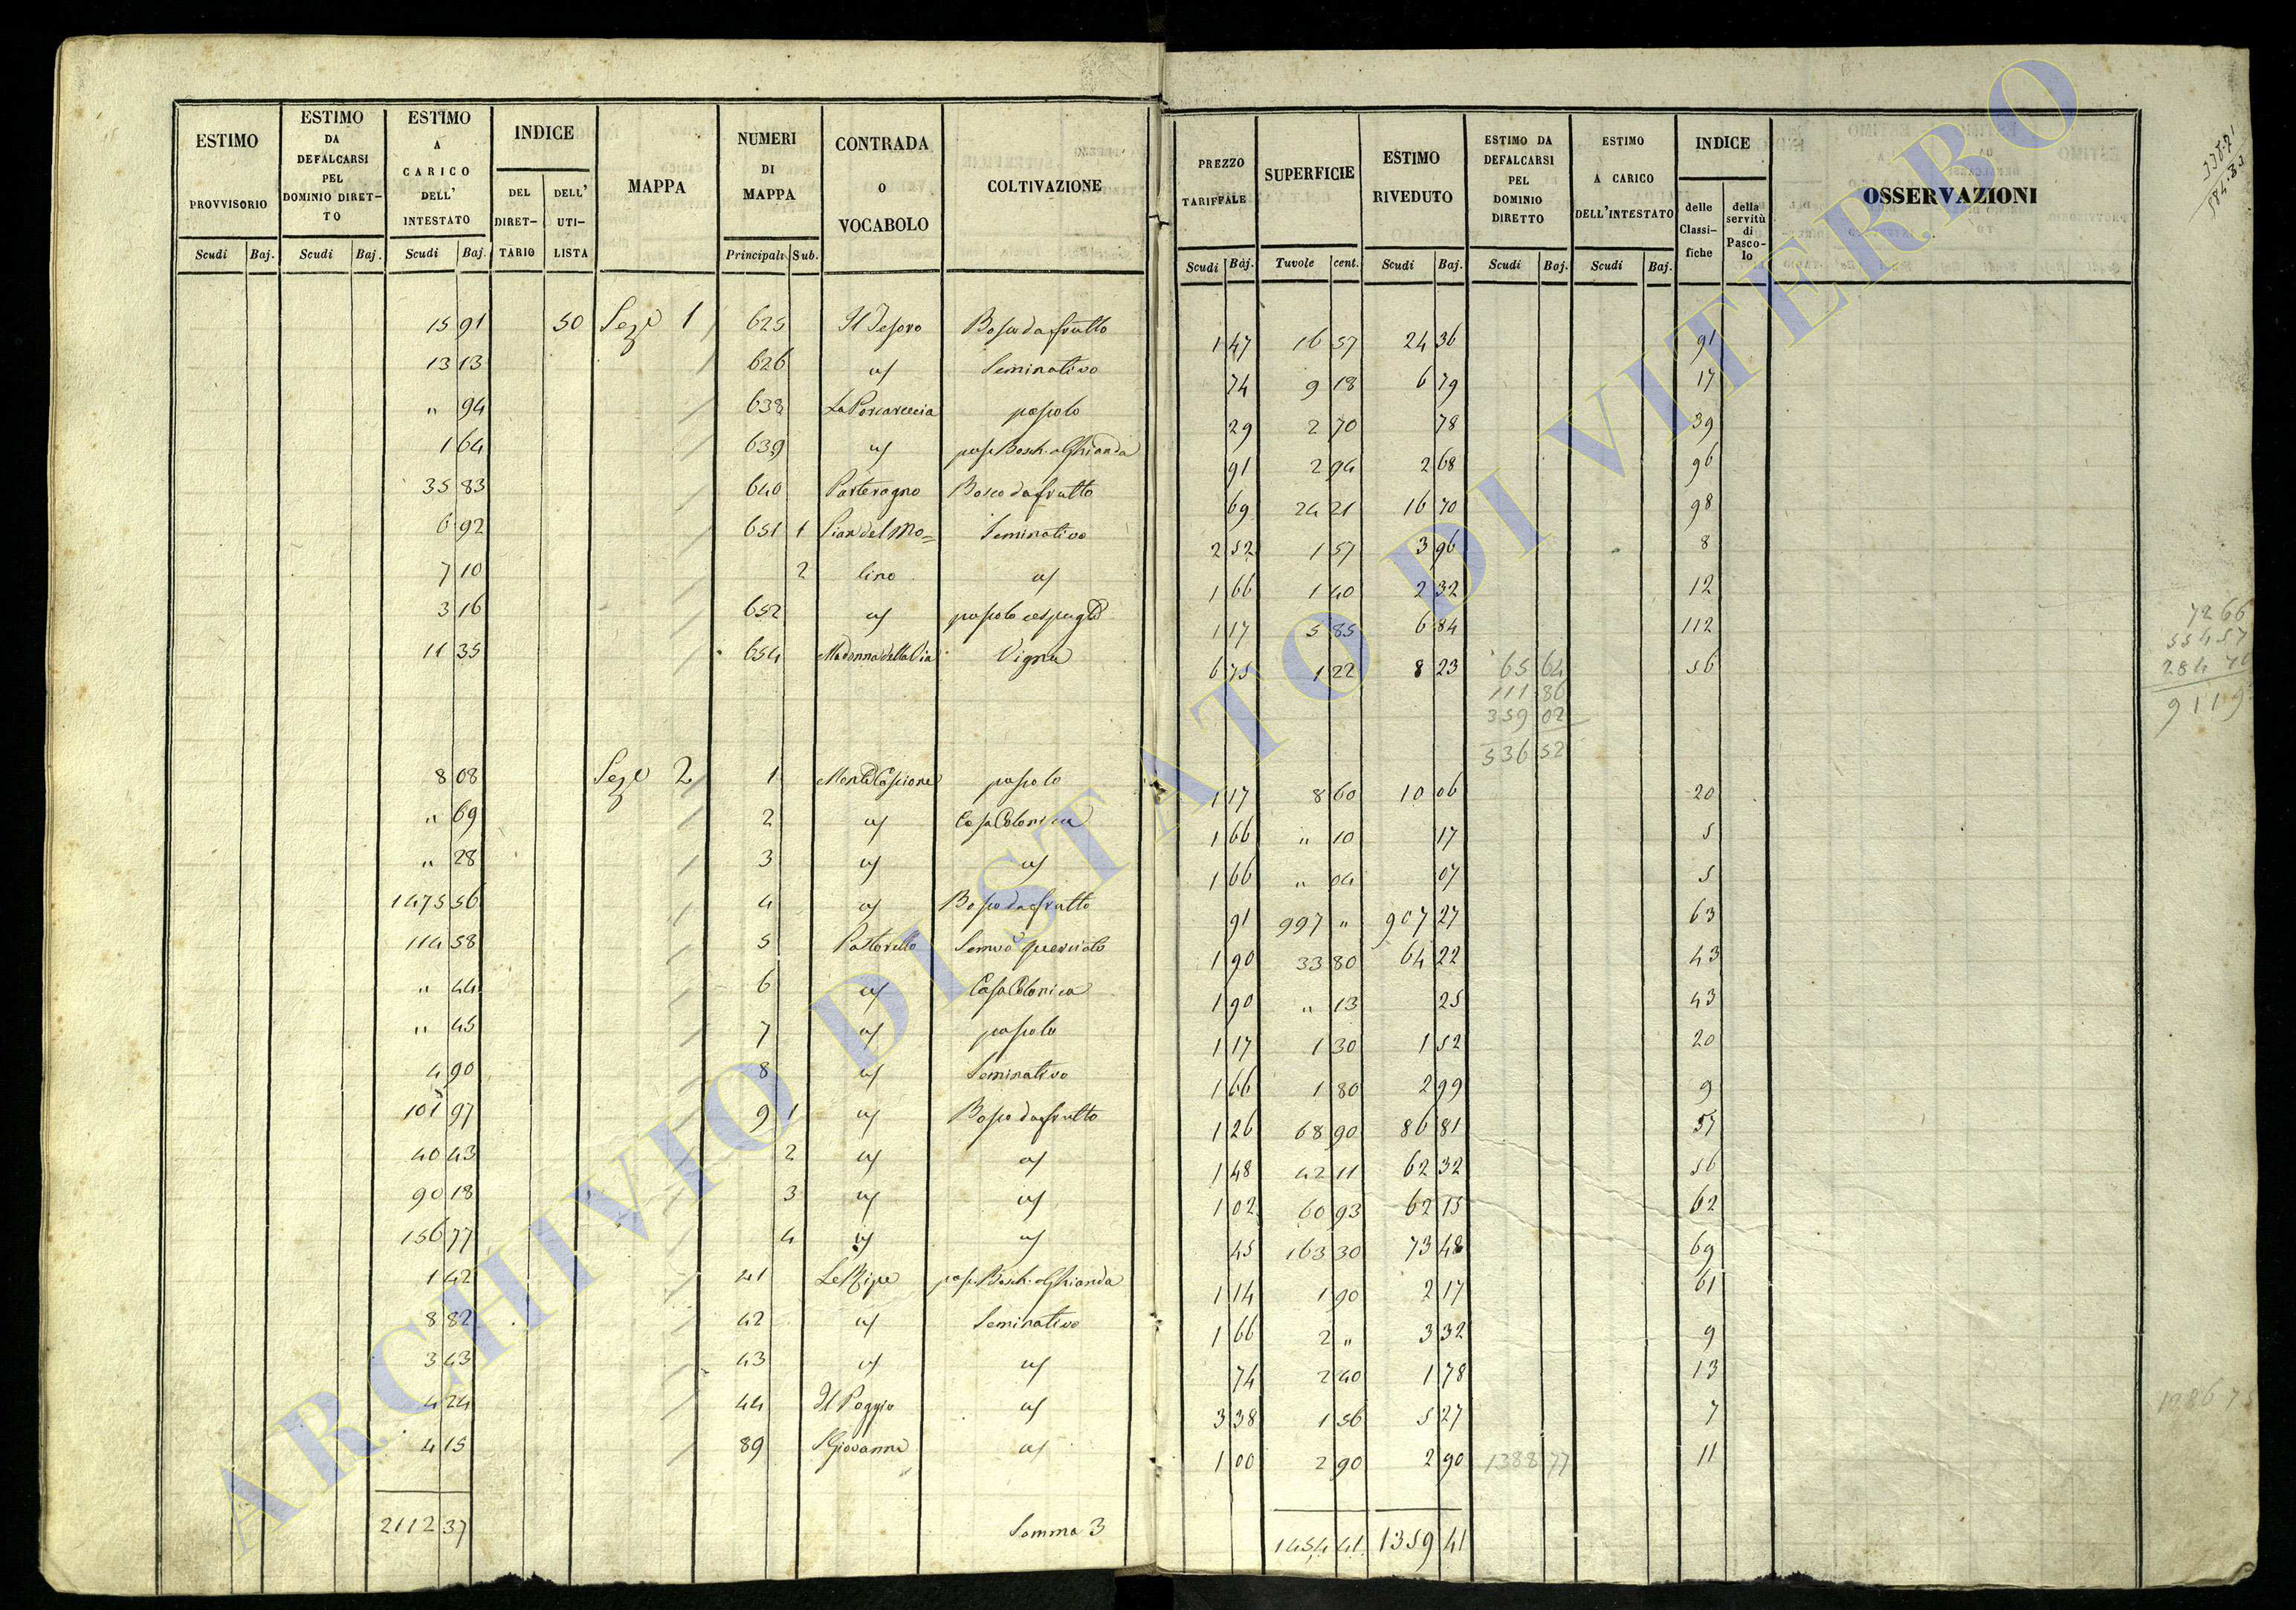 ESTIMO PROVVISORIO Scudi Baj.
ESTIMO DA DEFALCARSI PEL DOMINIO DIRETTO Scudi Baj.
ESTIMO A CARICO DELL' INTESTATO Scudi Baj.
INDICE DEL DIRETTARIO DELL' UTILISTA
MAPPA
NUMERI DI MAPPA Principali Sub.
CONTRADA O VOCABOLO
COLTIVAZIONE
PREZZO TARIFFALE Scudi Baj.
SUPERFICIE Tavole cent.
ESTIMO RIVEDUTO Scudi Baj.
ESTIMO DA DEFALCARSI PEL DOMINIO DIRETTO Scudi Baj.
ESTIMO A CARICO DELL'INTESTATO Scudi Baj.
INDICE delle Classifiche della servitù di Pascolo
OSSERVAZIONI
15 91 50 Sez.e 1 625 Il Tesoro Bosco da frutto 1 47 16 57 24 36 91
13 13 626 u/ Seminativo 74 9 18 6 79 17
" 94 638 La Porcareccia pascolo 29 2 70 78 39
1 64 639 u/ pasc. Bosch. a Ghianda 91 2 94 2 68 96
35 83 640 Bosco da frutto 69 24 21 16 70 98
6 92 651 1 Pian del Mo= Seminativo 2 52 1 57 3 96 8
7 10 2 lino u/ 1 66 1 40 2 32 12
3 16 652 u/ pascolo cespugl.o 1 17 5 85 6 84 112
11 35 654 Madonna della Via Vigna 6 75 1 22 8 23 65 64 56
111 86
359 02
536 52
8 08 Sez.e 2 1 pascolo 1 17 8 60 10 06 20
" 69 2 u/ Casa Colonica 1 66 " 10 17 5
" 28 3 u/ u/ 1 66 " 04 07 5
1475 56 4 u/ Bosco da frutto 91 997 " 907 27 63
114 58 5 Pastorello Sem.vo querciato 1 90 33 80 64 22 43
" 44 6 u/ Casa Colonica 1 90 " 13 25 43
" 45 7 u/ pascolo 1 17 1 30 1 52 20
4 90 8 u/ Seminativo 1 66 1 80 2 99 9
101 97 9 1 u/ Bosco da frutto 1 26 68 90 86 81 57
40 43 2 u/ u/ 1 48 42 11 62 32 56
90 18 3 u/ u/ 1 02 60 93 62 15 62
156 77 4 u/ u/ 45 163 30 73 48 69
1 42 41 Le Ripe pasc. Bosch. a Ghianda 1 14 1 90 2 17 61
8 82 42 u/ Seminativo 1 66 2 " 3 32 9
3 43 43 u/ u/ 74 2 40 1 78 13
4 24 44 Il Poggio u/ 3 38 1 56 5 27 7
4 15 89 S. Giovanni u/ 1 00 2 90 2 90 1388 77 11
2112 37 Somma 3 1454 41 1359 41
7266
55457
9119
1386 75
ARCHIVIO DI STATO DI VITERBO